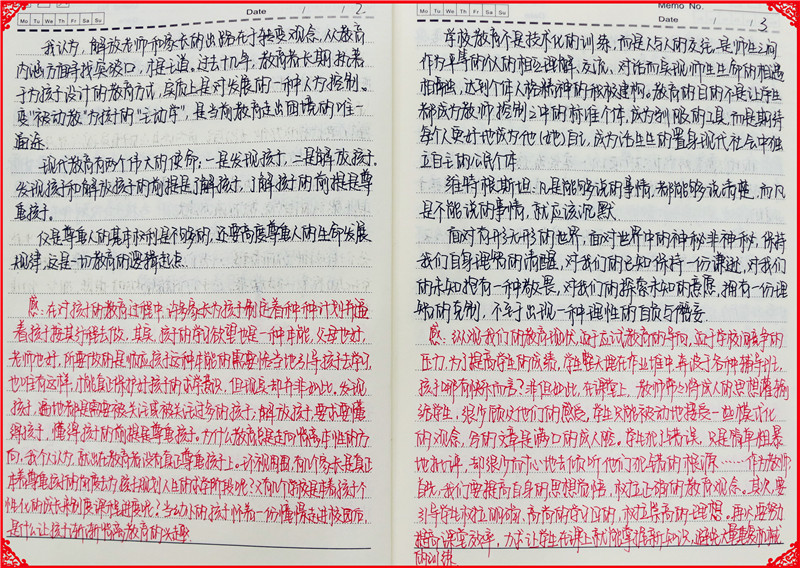 Date 1 2
Mo Tu We Th Fr Sa Su
我认为，解放老师和家长的出路在于转变观念，从教育
内涵方面寻找突破口，才是正道。过去十几年，教育者长期执着
于为孩子设计的教育方式，实质上是对发展的一种人为控制。
变"被动教"为孩子的"主动学"，是当前教育走出困境的唯一
通途。
现代教育有两个伟大的使命，一是发现孩子，二是解放孩子。
发现孩子和解放孩子的前提是了解孩子，了解孩子的前提是尊
重孩子。
仅是尊重人的基本权利是不够的，还要高度尊重人的生命发展
规律，这是一切教育的逻辑起点。
感：在对孩子的教育过程中，许多家长为孩子制定着种种计划并逼
着孩子按其行程去做。其实，孩子的学习欲望也是一种本能，父母也好，
老师也好，所要做的是顺应孩子这种本能的需要恰当地引导孩子去学习，
也唯有这样，才能真正保护好孩子的求学意识，但现实却并非如此。发现
孩子，遍地都是需要被关注或被关注过多的孩子；解放孩子，要求要懂
得孩子，懂得孩子的前提是尊重孩子。为什么教育总是走向背离本性的方
向，我个人认为，就出在教育者没有真正尊重孩子上。环视周围，有几个家长是真正
本着尊重孩子的角度为孩子规划人生的求学阶段呢？又有几个学校是本着孩子个
性化的成长来制定课程进度呢？当幼小的孩子怀着一份懵懂走进校园后，
是什么让孩子渐渐背离教育的兴趣
Memo No.
Mo Tu We Th Fr Sa Su
Date 1 3
学校教育不是技术化的训练，而是人与人的交往，是师生之间
作为平等的伙伴的相互理解、交流、对话而实现师生生命的相遇
相融，达到个体人格精神的积极建构。教育的目的不是让学生
都成为教师控制之中的标准个体，成为驯服的工具，而是期待
每个人更好地成为他（她）自己，成为活生生的置身现代社会中独
立自主的公民个体。
维特根斯坦：凡是能够说的事情，都能够说清楚，而凡
是不能说的事情，就应该沉默。
面对有形无形的世界，面对世界中的神秘非神秘，保持
我们自身理智的清醒，对我们的已知保持一份谦逊，对我们
的未知抱有一种敬畏，对我们的探索未知的意愿，拥有一份理
智的克制，不至于出现一种理性的自负与僭妄
感：纵观我们的教育现状，迫于应试教育的导向，迫于学校间竞争的
压力，为了提高学生的成绩，学生整天埋在作业堆中，奔波于各种辅导班，
孩子哪有时间而言？非但如此，在课堂上，教师常常将成人的思想灌输
给学生，很少顾及他们的感受。学生只能被动地接受一些模式化
的观念，写的文章是满口的成人腔。学生犯了错误，只是简单粗暴
地批评，却很少耐心地去倾听他们犯错的根源……作为教师，
首先，我们要提高自身的思想觉悟，树立正确的教育观念。其次，要
引导学生树立明确、高尚的学习目的，树立崇高的理想。再次要努
力提高课堂效率，力求让学生在课上就能掌握新知识，避免大量重复机械
的训练